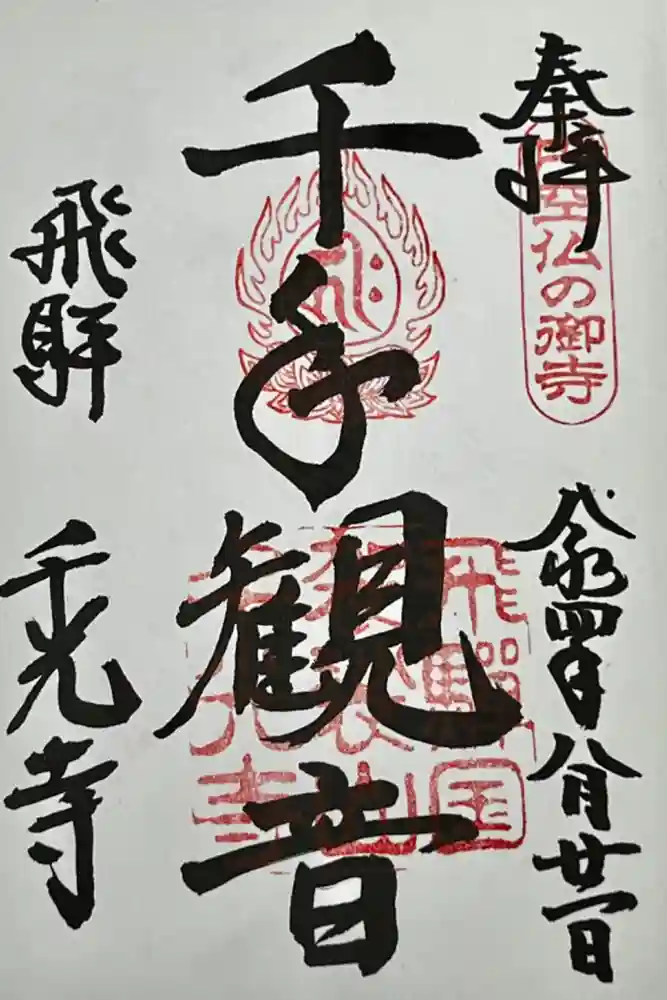 奉拝
円空仏の御寺
令和四年八月廿一日
千手観音
飛騨国
袈裟山
千光寺
飛騨
千光寺